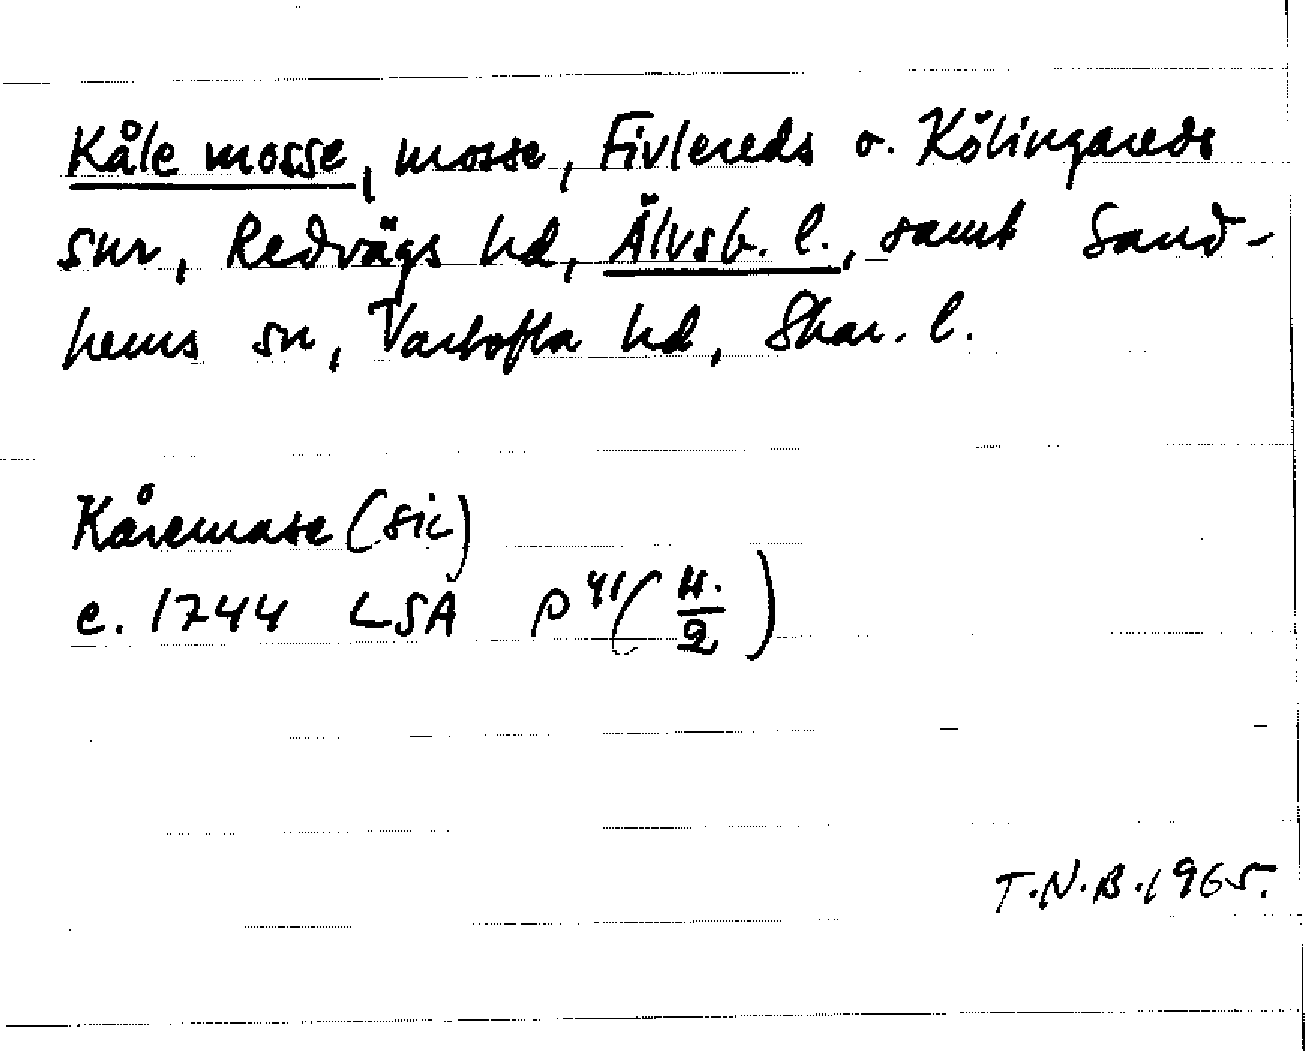 Kåle mosse, mosse, Fivlereds o. Kölingareds
snr, Redvägs hd, Älvsb. l., samt Sand-
hems sn, Vartofta hd, Skar. l.
Kåremase (sic)
c. 1744 LSA P 41 (11./2)
T.N.B. 1965.